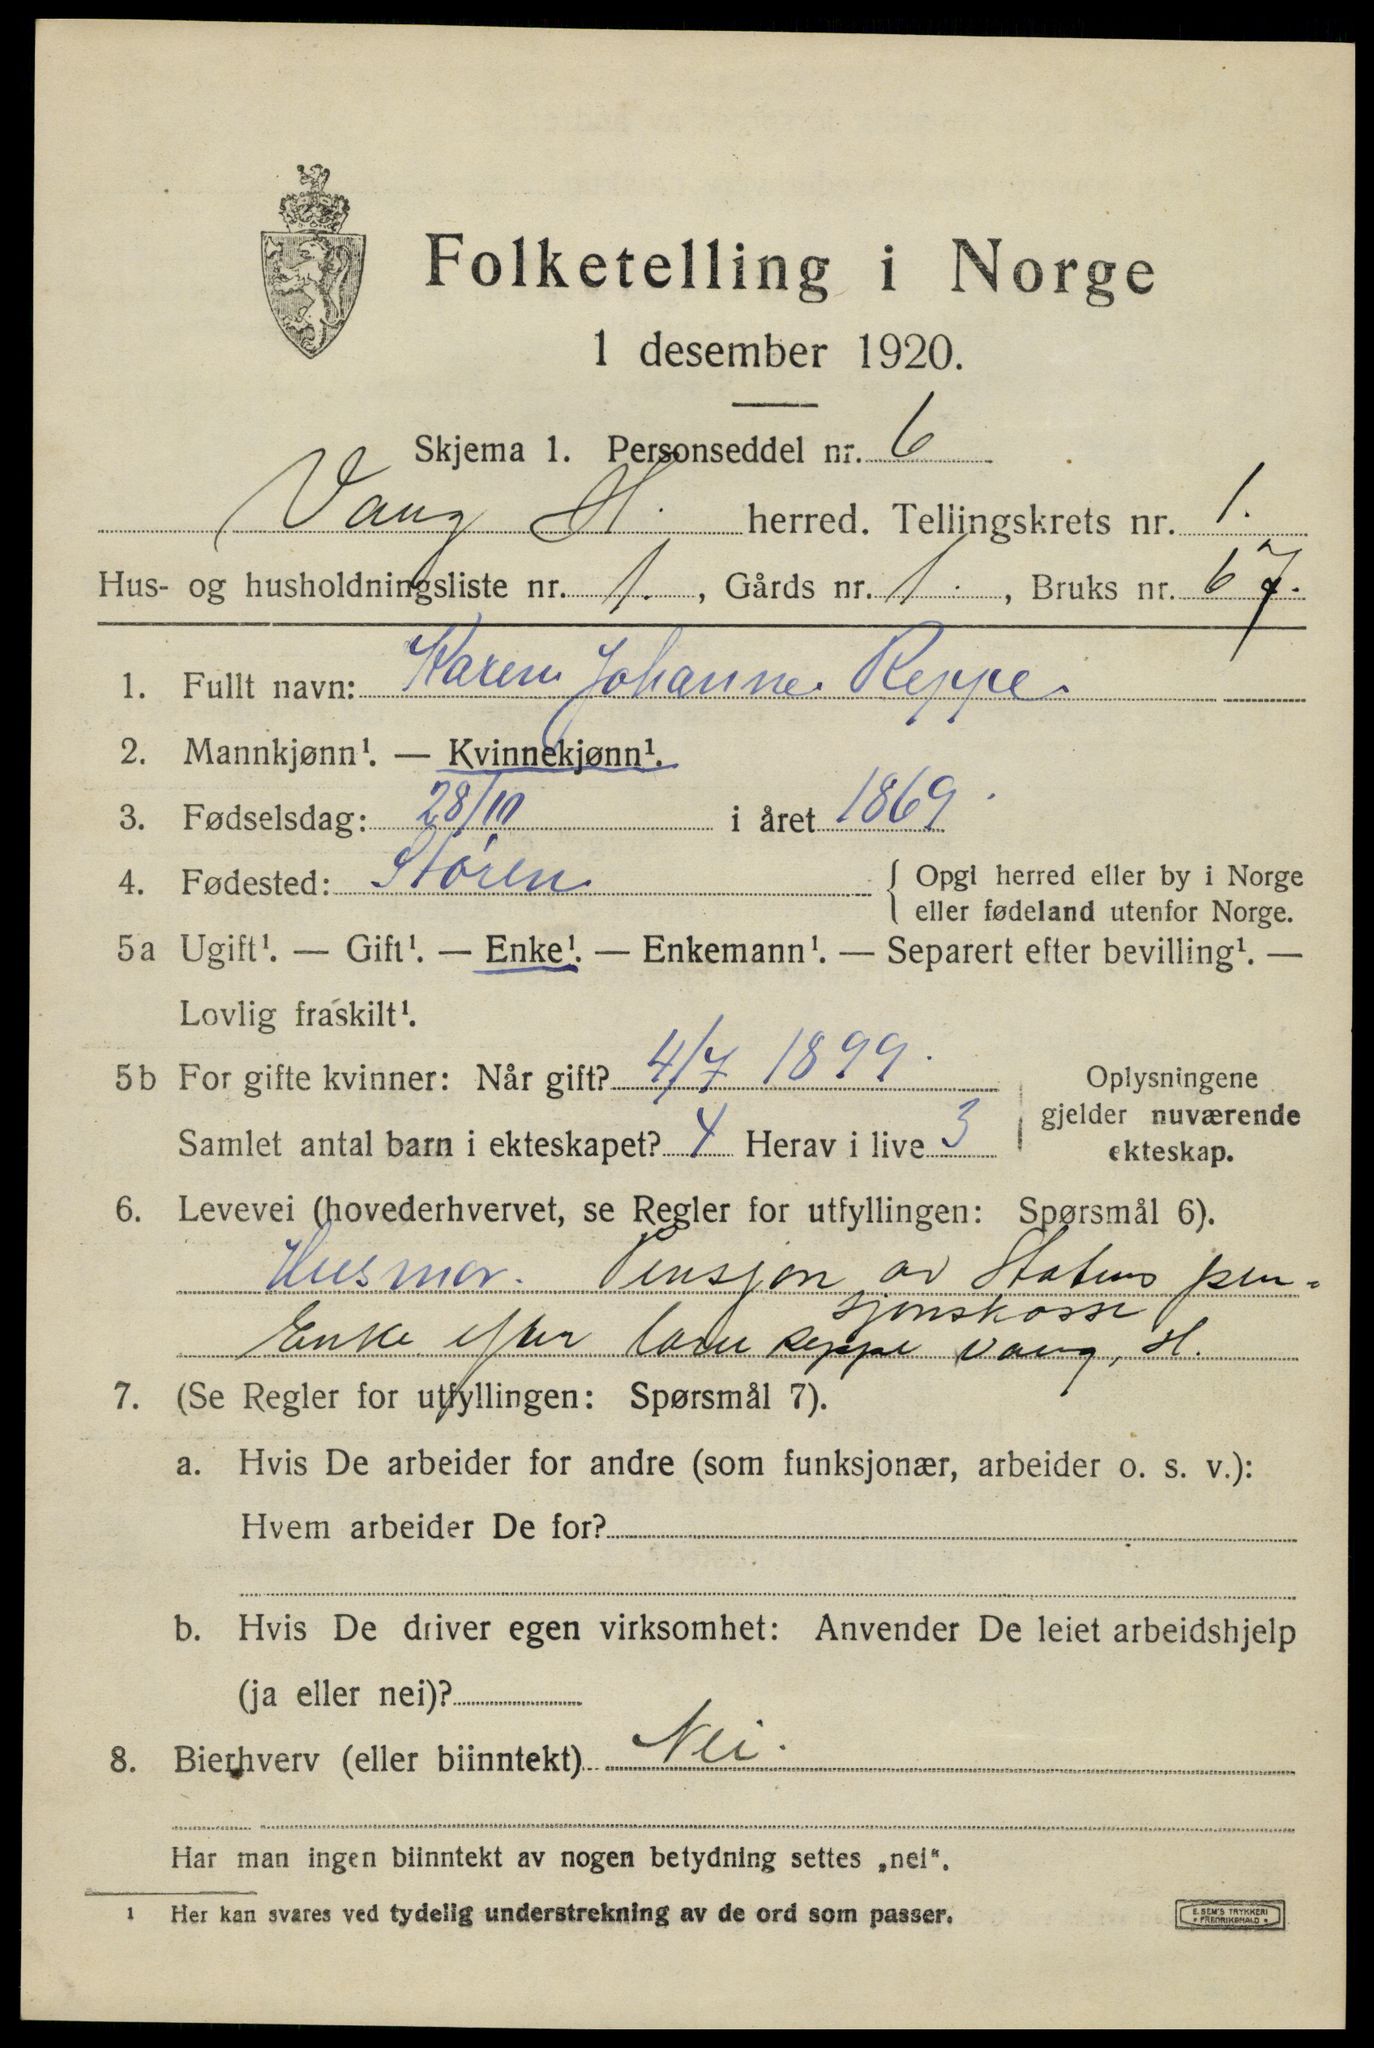 Folketelling i Norge
1 desember 1920.
Skjema 1. Personseddel nr. 6
Vang H. herred. Tellingskrets nr. 1.
Hus- og husholdningsliste nr. 1., Gårds nr. 1., Bruks nr. 67.
1. Fullt navn: Karen Johanne Reppe
2. Mannkjønn¹. — Kvinnekjønn¹.
3. Fødselsdag: 28/10 i året 1869.
4. Fødested: Støren { Opgi herred eller by i Norge
eller fødeland utenfor Norge.
5a Ugift¹. — Gift¹. — Enke¹. — Enkemann¹. — Separert efter bevilling¹. —
Lovlig fraskilt¹.
5b For gifte kvinner: Når gift? 4/7 1899.
Samlet antal barn i ekteskapet? 4 Herav i live 3
Oplysningene
gjelder nuværende
ekteskap.
6. Levevei (hovederhvervet, se Regler for utfyllingen: Spørsmål 6).
Husmor. Pensjon av Statens pen-
sjonskasse
Enke efter Reppe Vang, H.
7. (Se Regler for utfyllingen: Spørsmål 7).
a. Hvis De arbeider for andre (som funksjonær, arbeider o. s. v.):
Hvem arbeider De for?
b. Hvis De driver egen virksomhet: Anvender De leiet arbeidshjelp
(ja eller nei)?
8. Bierhverv (eller biinntekt) Nei.
Har man ingen biinntekt av nogen betydning settes „nei".
1 Her kan svares ved tydelig understrekning av de ord som passer.
E. SEM'S TRYKKERI
• FREDRIKSHALD •